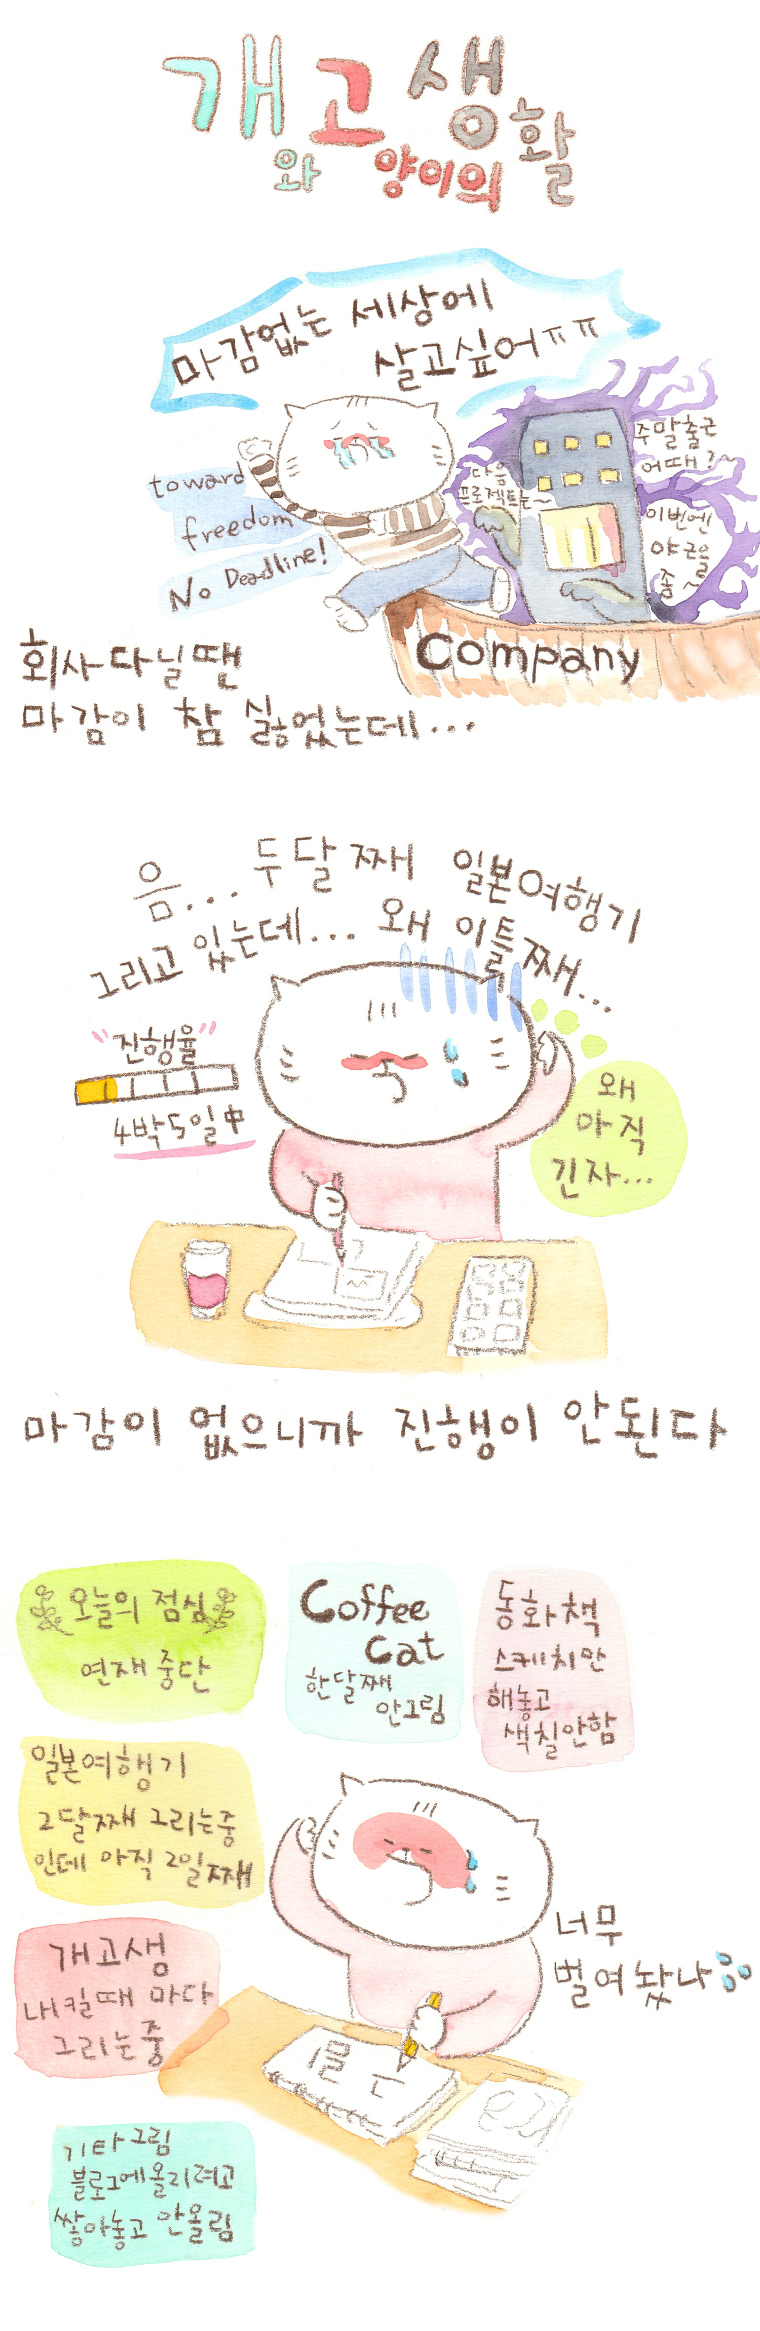 개고생활
와 양이의
마감없는 세상에
살고싶어ㅠㅠ
toward
freedom
No Deadline!
다음
프로젝트는~
주말출근
어때?~
이번엔
야근을
좀~
Company
회사다닐땐
마감이 참 싫었는데...
음... 두달째 일본여행기
그리고 있는데... 왜 이틀째...
"진행율"
4박5일中
왜
아직
긴자...
마감이 없으니까 진행이 안된다
오늘의 점심
연재 중단
Coffee
Cat
한달째
안그림
동화책
스케치만
해놓고
색칠안함
일본여행기
2달째 그리는중
인데 아직 2일째
개고생
내킬때 마다
그리는중
너무
벌여놨나
기타그림
블로그에올리려고
쌓아놓고 안올림